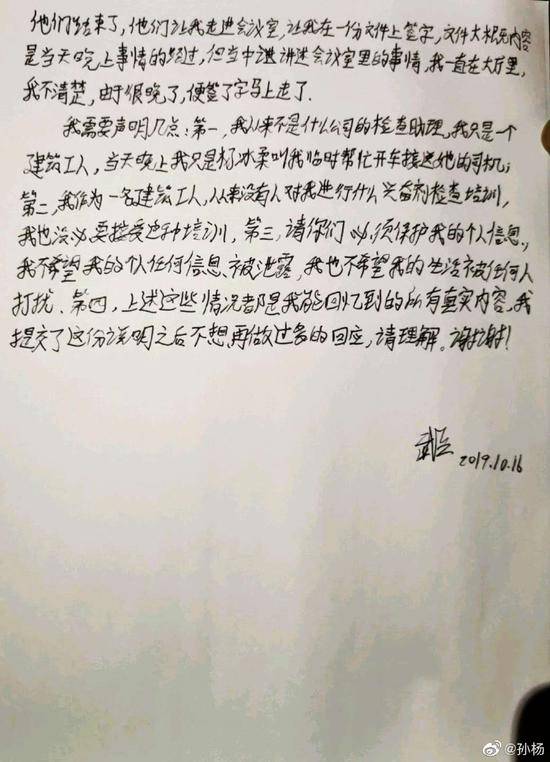 他们结束了,他们让我走进会议室,让我在一份文件上签字,文件大概内容
是当天晚上事情的经过,但当中讲述会议室里的事情,我一直在大厅里,
我不清楚,由于很晚了,便签了字马上走了.
我需要声明几点:第一,我从来不是什么公司的检查助理,我只是一个
建筑工人,当天晚上我只是杨冰柔叫我临时帮忙开车接送她的司机;
第二,我作为一名建筑工人,从来没有人对我进行什么兴奋剂检查培训,
我也没必要接受这种培训,第三,请你们必须保护我的个人信息,
我不希望我的个人任何信息被泄露,我也不希望我的生活被任何人
打扰.第四,上述这些情况都是我能回忆到的所有真实内容,我
提交了这份说明之后不想再做过多的回应,请理解.谢谢!
2019.10.16
@孙杨